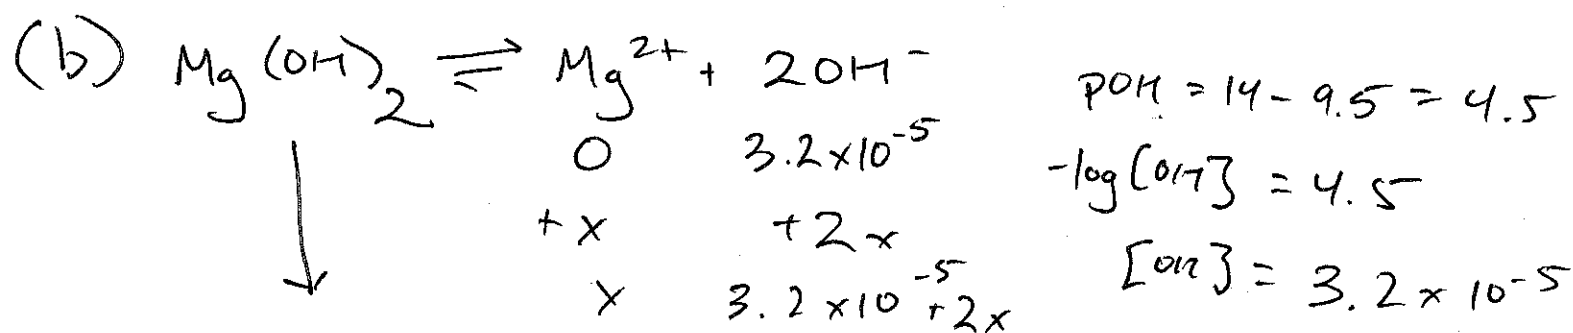 (b) Mg(OH)₂ ⇌ Mg²⁺ + 2OH⁻
0 3.2×10⁻⁵
+x +2x
x 3.2×10⁻⁵+2x
pOH = 14-9.5 = 4.5
-log[OH] = 4.5
[OH] = 3.2×10⁻⁵